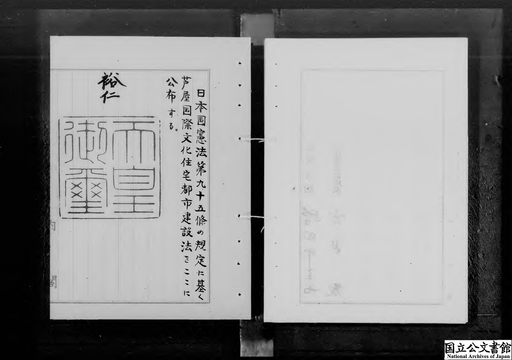 日本国憲法第九十五條の規定に基く
芦屋国際文化住宅都市建設法をここに
公布する。
裕仁
天皇
御璽
内
閣
国立公文書館
National Archives of Japan